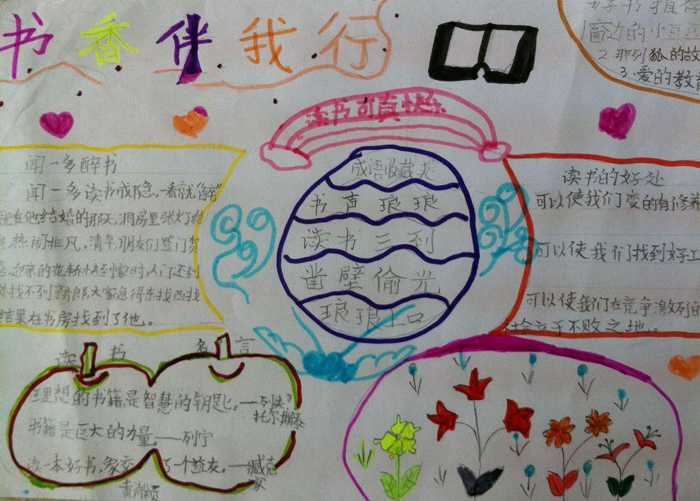 书香伴我行
好书推荐
窗边的小豆豆
2.那列狐的故
3.爱的教育
读书可真快乐
闻一多醉书
闻一多读书成隐,一看就"醉"
在他结婚的那天,洞房里张灯结
热闹非凡。清早朋友们登门贺
迎亲的花轿快到家时,人们还到
找不到新郎,大家急得东找西找
结果在书房找到了他。
成语收藏夹
书声琅琅
读书三到
凿壁偷光
琅琅上口
读书的好处
可以使我们变的有修养
可以使我们找到好工
可以使我们在竞争激烈的
立于不败之地。
读书名言
理想的书籍是智慧的钥匙。——列夫?
托尔斯泰
书籍是巨大的力量——列宁
读一本好书,象交了一个益友。——臧克
家